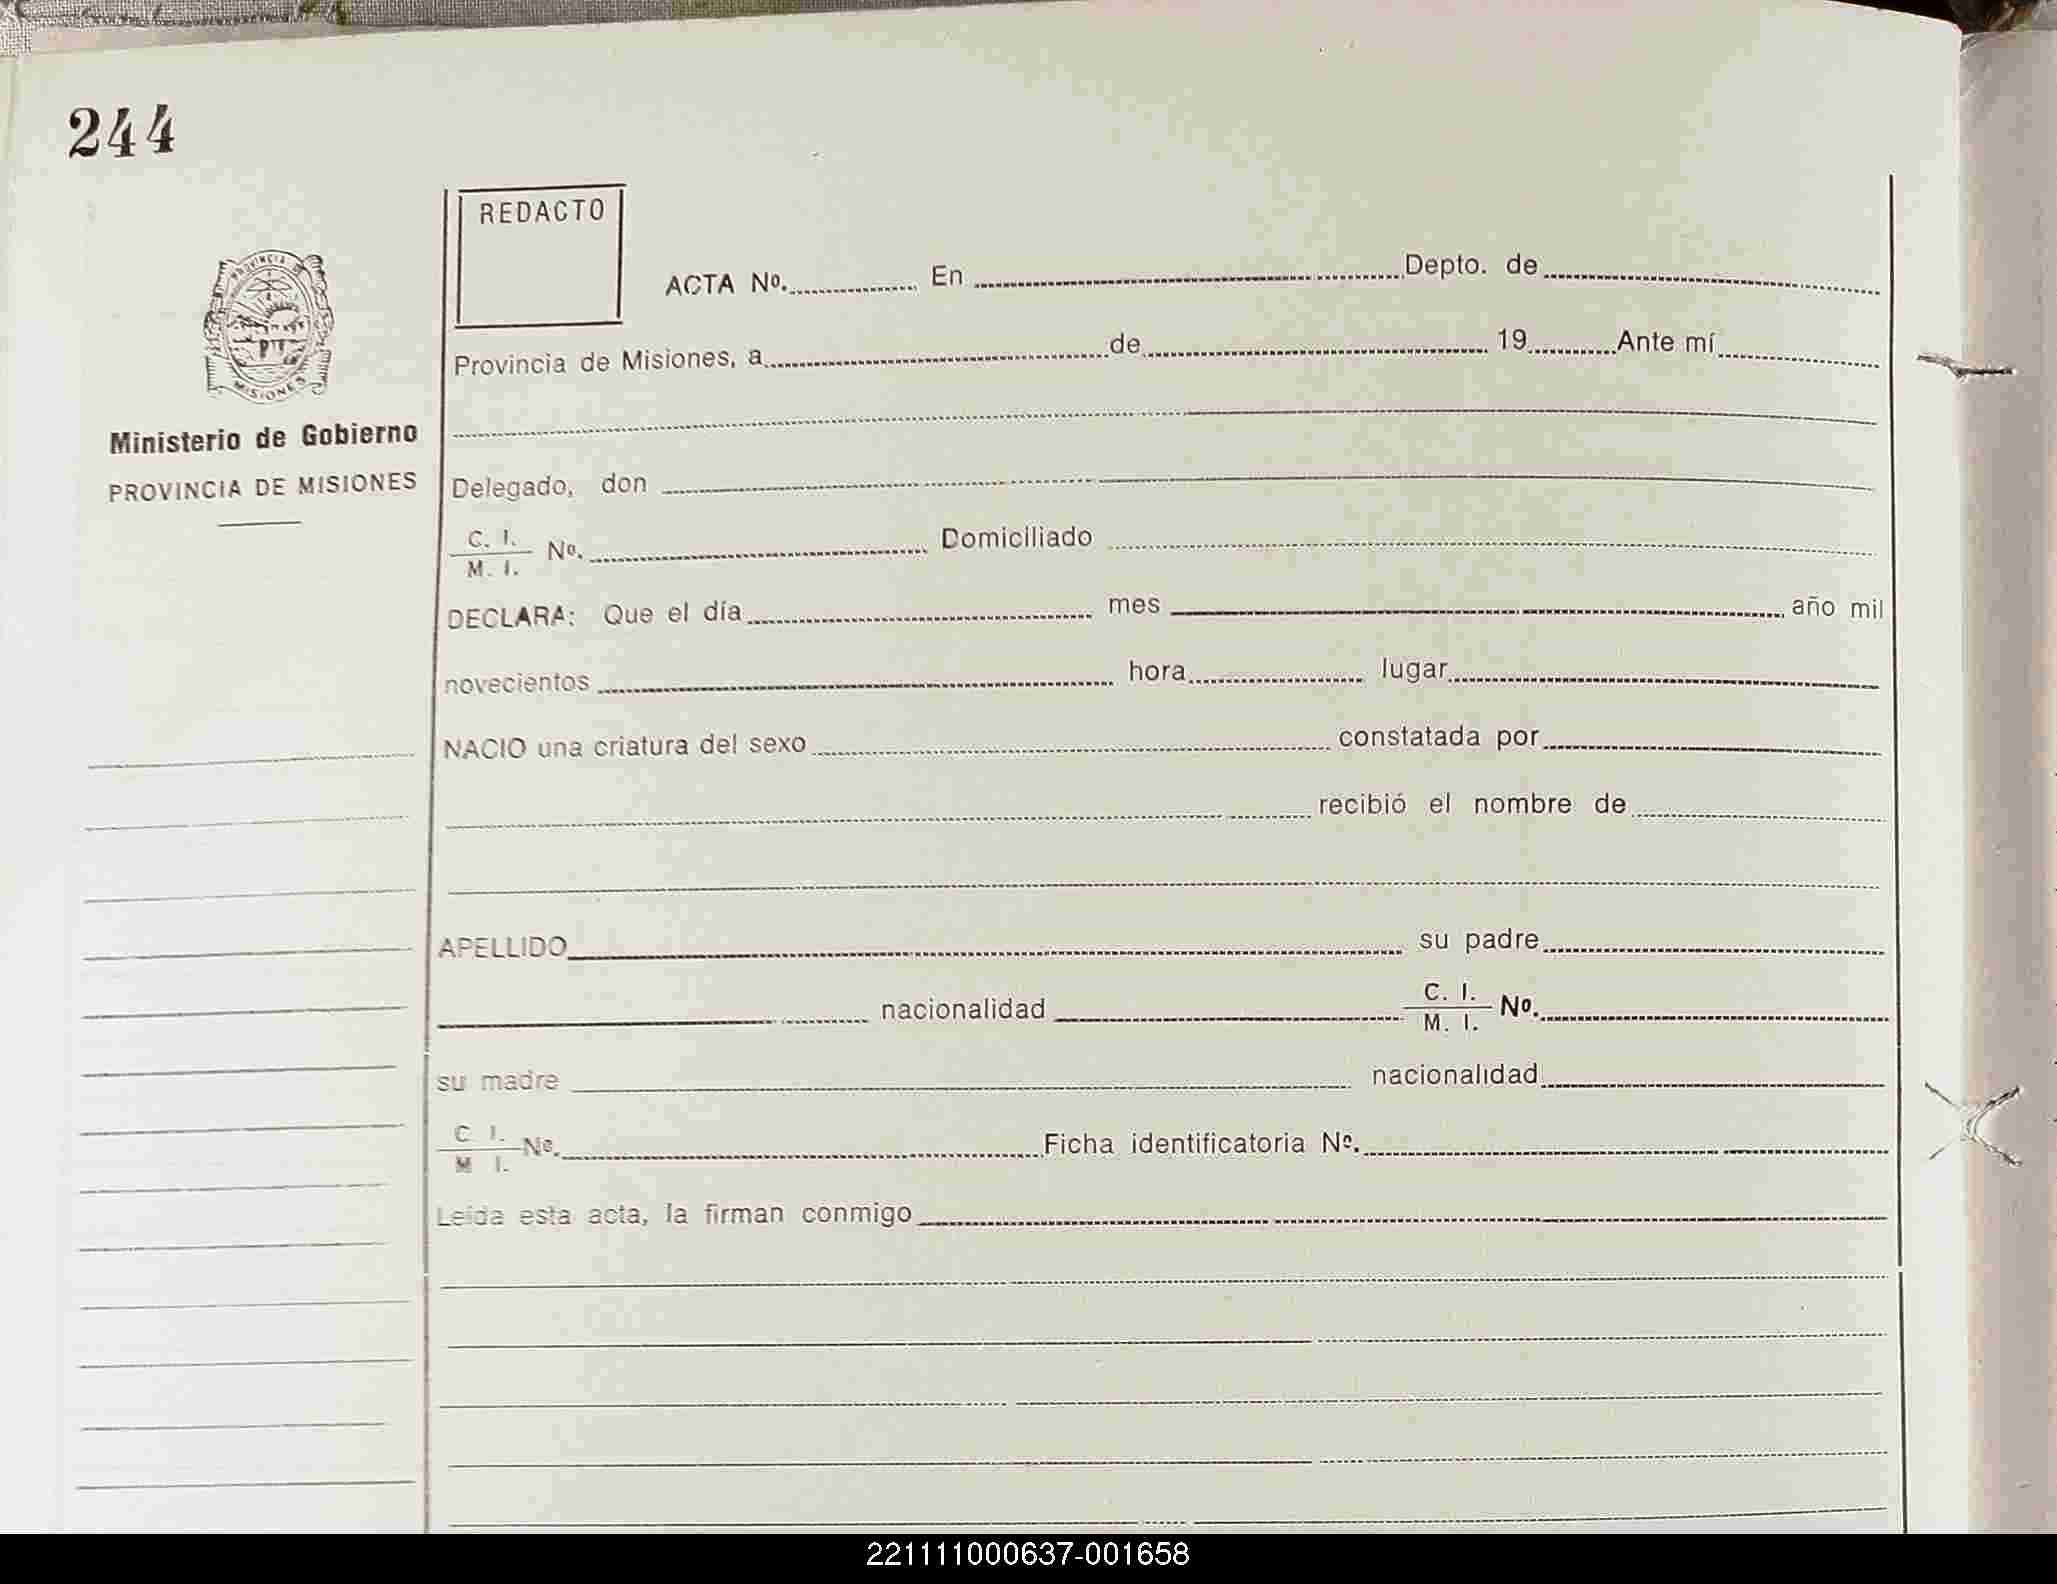 244
PROVINCIA DE
MISIONES
Ministerio de Gobierno
PROVINCIA DE MISIONES
REDACTO
ACTA Nº. En Depto. de
Provincia de Misiones, a de 19 Ante mí
Delegado, don
C. I.
M. I. Nº. Domiciliado
DECLARA: Que el día mes año mil
novecientos hora lugar
NACIO una criatura del sexo constatada por
recibió el nombre de
APELLIDO su padre
nacionalidad C. I.
M. I. Nº.
su madre nacionalidad
C. I.
M. I. Nº. Ficha identificatoria Nº.
Leída esta acta, la firman conmigo
221111000637-001658